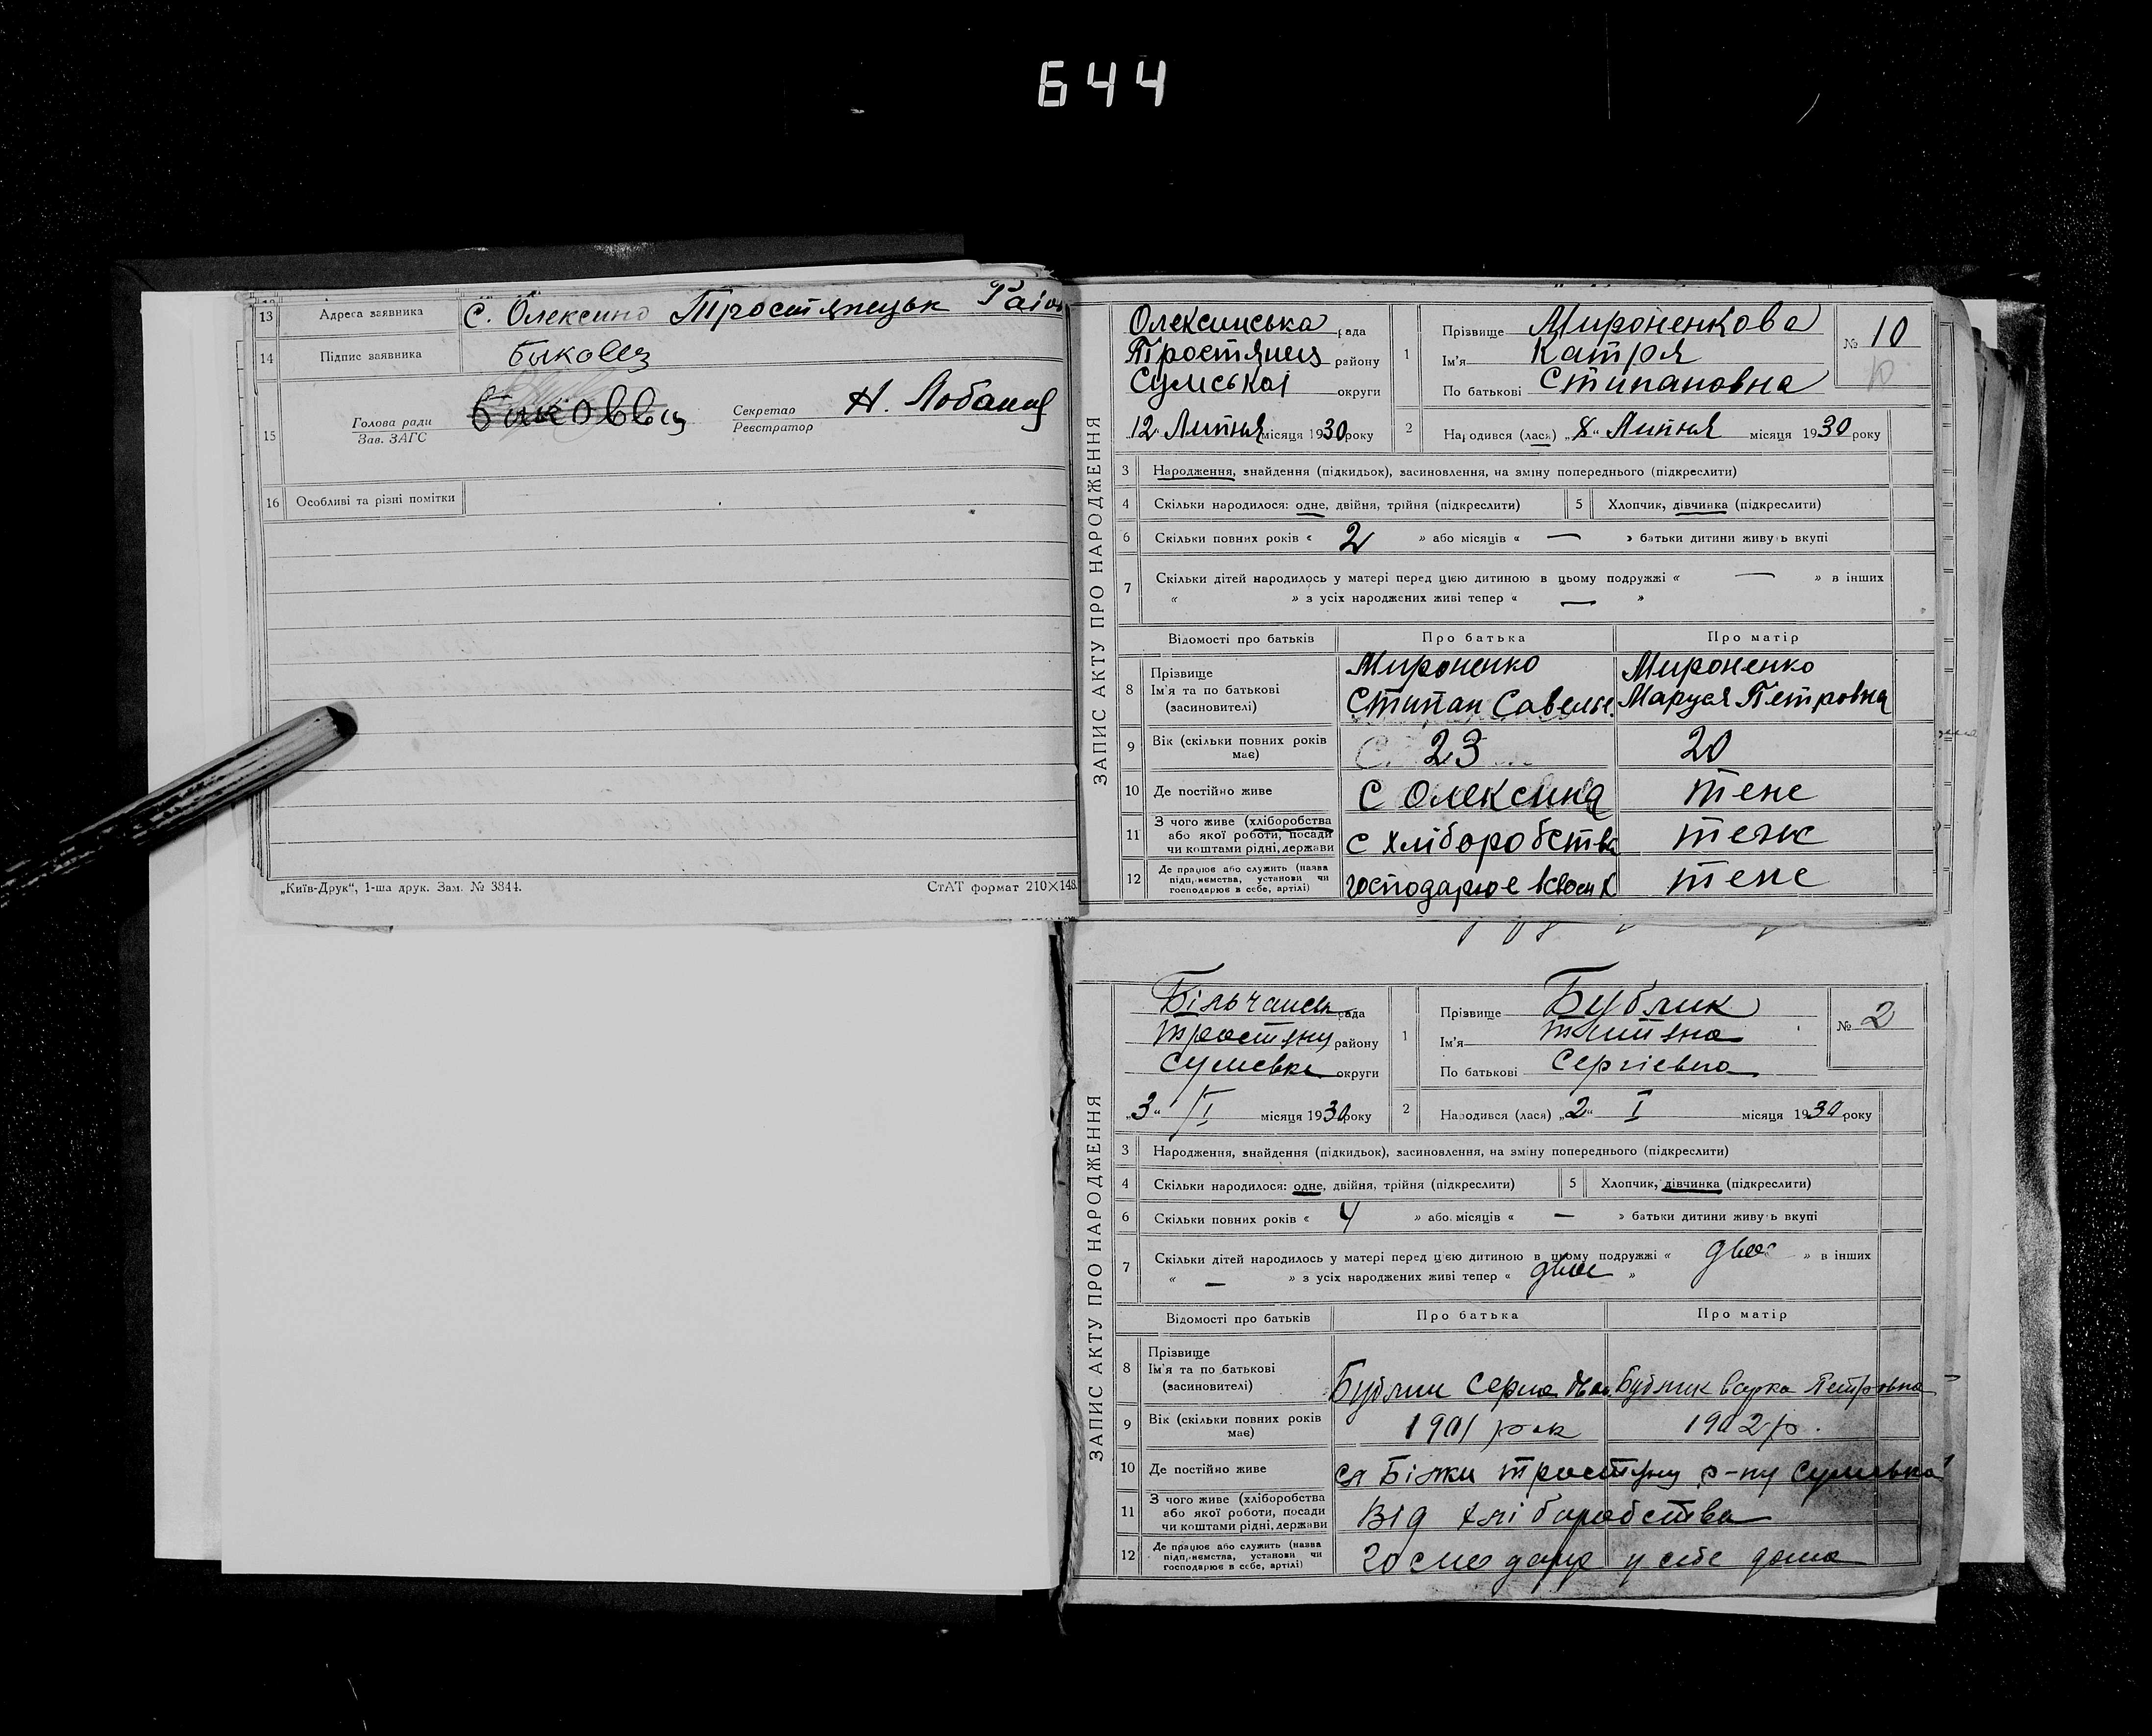 644
13 Адреса заявника С. Олексино Тростянецьк Район
14 Підпис заявника Биковец
15 Голова ради Зав. ЗАГС Секретар Реєстратор Н.
16 Особливі та різні помітки
„Київ-Друк“, 1-ша друк. Зам. № 3844. СтАТ формат 210×148.
ЗАПИС АКТУ ПРО НАРОДЖЕННЯ
Олексинська рада
Тростянец району
Сумської округи
1 Прізвище Мироненкова
Ім'я Катря
По батькові Стипановна
№ 10
12 „ Липня місяця 1930 року
2 Народився (лася) „8“ Липня місяця 1930 року
3 Народження, знайдення (підкидьок), засиновлення, на зміну попереднього (підкреслити)
4 Скільки народилося: одне, двійня, трійня (підкреслити) 5 Хлопчик, дівчинка (підкреслити)
6 Скільки повних років « 2 » або місяців « — » батьки дитини живуть вкупі
7 Скільки дітей народилось у матері перед цією дитиною в цьому подружжі « — » в інших
« » з усіх народжених живі тепер « — »
Відомості про батьків Про батька Про матір
8 Прізвище Мироненко Мироненко
Ім'я та по батькові Стипан Савельє. Маруся Петровна
(засиновителі)
9 Вік (скільки повних років має) 23 20
10 Де постійно живе С Олексина теж
11 З чого живе (хліборобства або якої роботи, посади чи коштами рідні, держави с хліборобства теж
12 Де працює або служить (назва підприємства, установи чи господарює в себе, артілі) господарює теж
ЗАПИС АКТУ ПРО НАРОДЖЕННЯ
Більчанськ рада
Тростянц району
Сумська округи
1 Прізвище Бублик
Ім'я
По батькові Сергієвна
№ 2
„3“ I місяця 1930 року
2 Народився (лася) „2“ I місяця 1930 року
3 Народження, знайдення (підкидьок), засиновлення, на зміну попереднього (підкреслити)
4 Скільки народилося: одне, двійня, трійня (підкреслити) 5 Хлопчик, дівчинка (підкреслити)
6 Скільки повних років « 4 » або місяців « — » батьки дитини живуть вкупі
7 Скільки дітей народилось у матері перед цією дитиною в цьому подружжі « двоє » в інших
« — » з усіх народжених живі тепер « двоє »
Відомості про батьків Про батька Про матір
8 Прізвище
Ім'я та по батькові
(засиновителі) Бублик Бублик Варка Петровна
9 Вік (скільки повних років має) 1901 рок 1902 р.
10 Де постійно живе Білки тростянц р-ну Сумська
11 З чого живе (хліборобства або якої роботи, посади чи коштами рідні, держави від хліборобства
12 Де працює або служить (назва підприємства, установи чи господарює в себе, артілі) господарю у себе дома